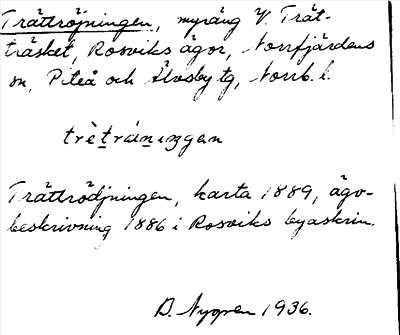 Trättröjningen, myräng V. Trät-
träsket, Rosviks ägor, Norrfjärdens
sn, Piteå och Älvsby tg, Norrb. l.
trè̱tráṉıŋgan
Trättrödjningen, karta 1889, ägo-
beskrivning 1886 i Rosviks byaskrin.
D. Nygren 1936.